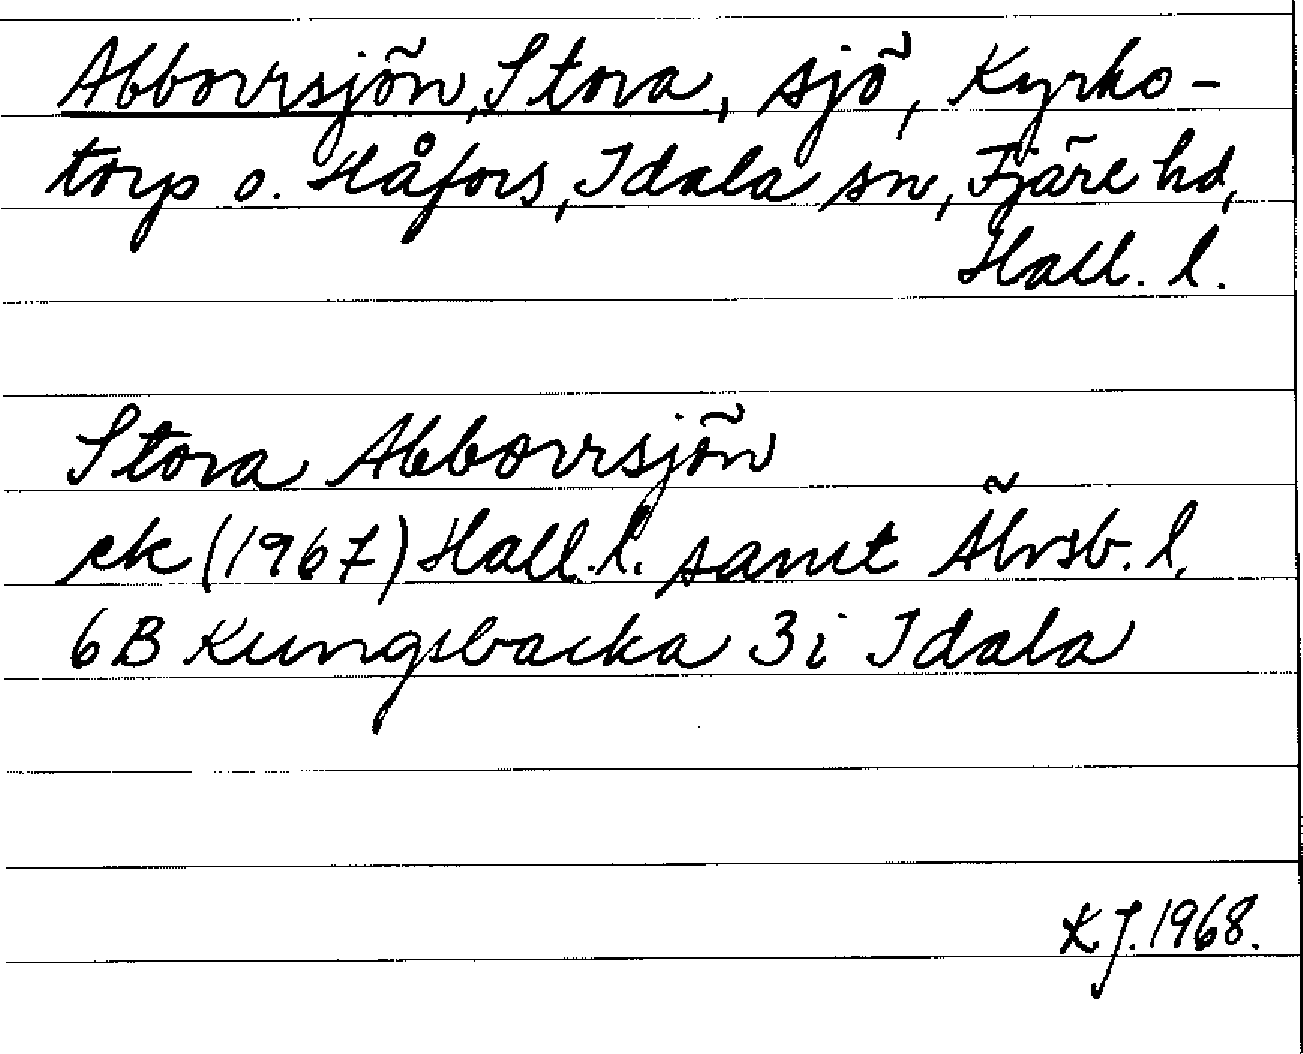 Abborrsjön, Stora, sjö, Kyrko-
torp o. Håfors, Idala sn, Fjäre hd,
Hall. l.
Stora Abborrsjön
ek (1967) Hall. l. samt Älvsb. l.
6B Kungsbacka 3i Idala
KJ. 1968.